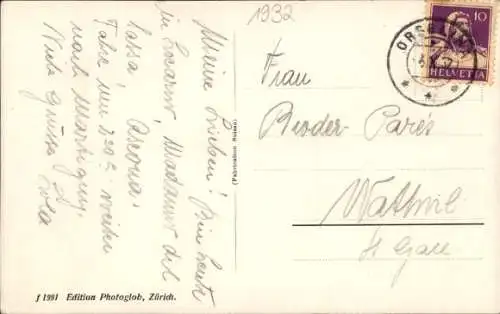 1932
Meine Lieben! Bin heute
in Locarno, Madonna del
Sassa, Ascona.
Fahre um 220 weiter
nach Martigny.
Viele Grüsse
(Fabrication Suisse)
J 1991 Edition Photoglob, Zürich.
10
HELVETIA
Frau
Broder-Parés
Wattwil
St Gall